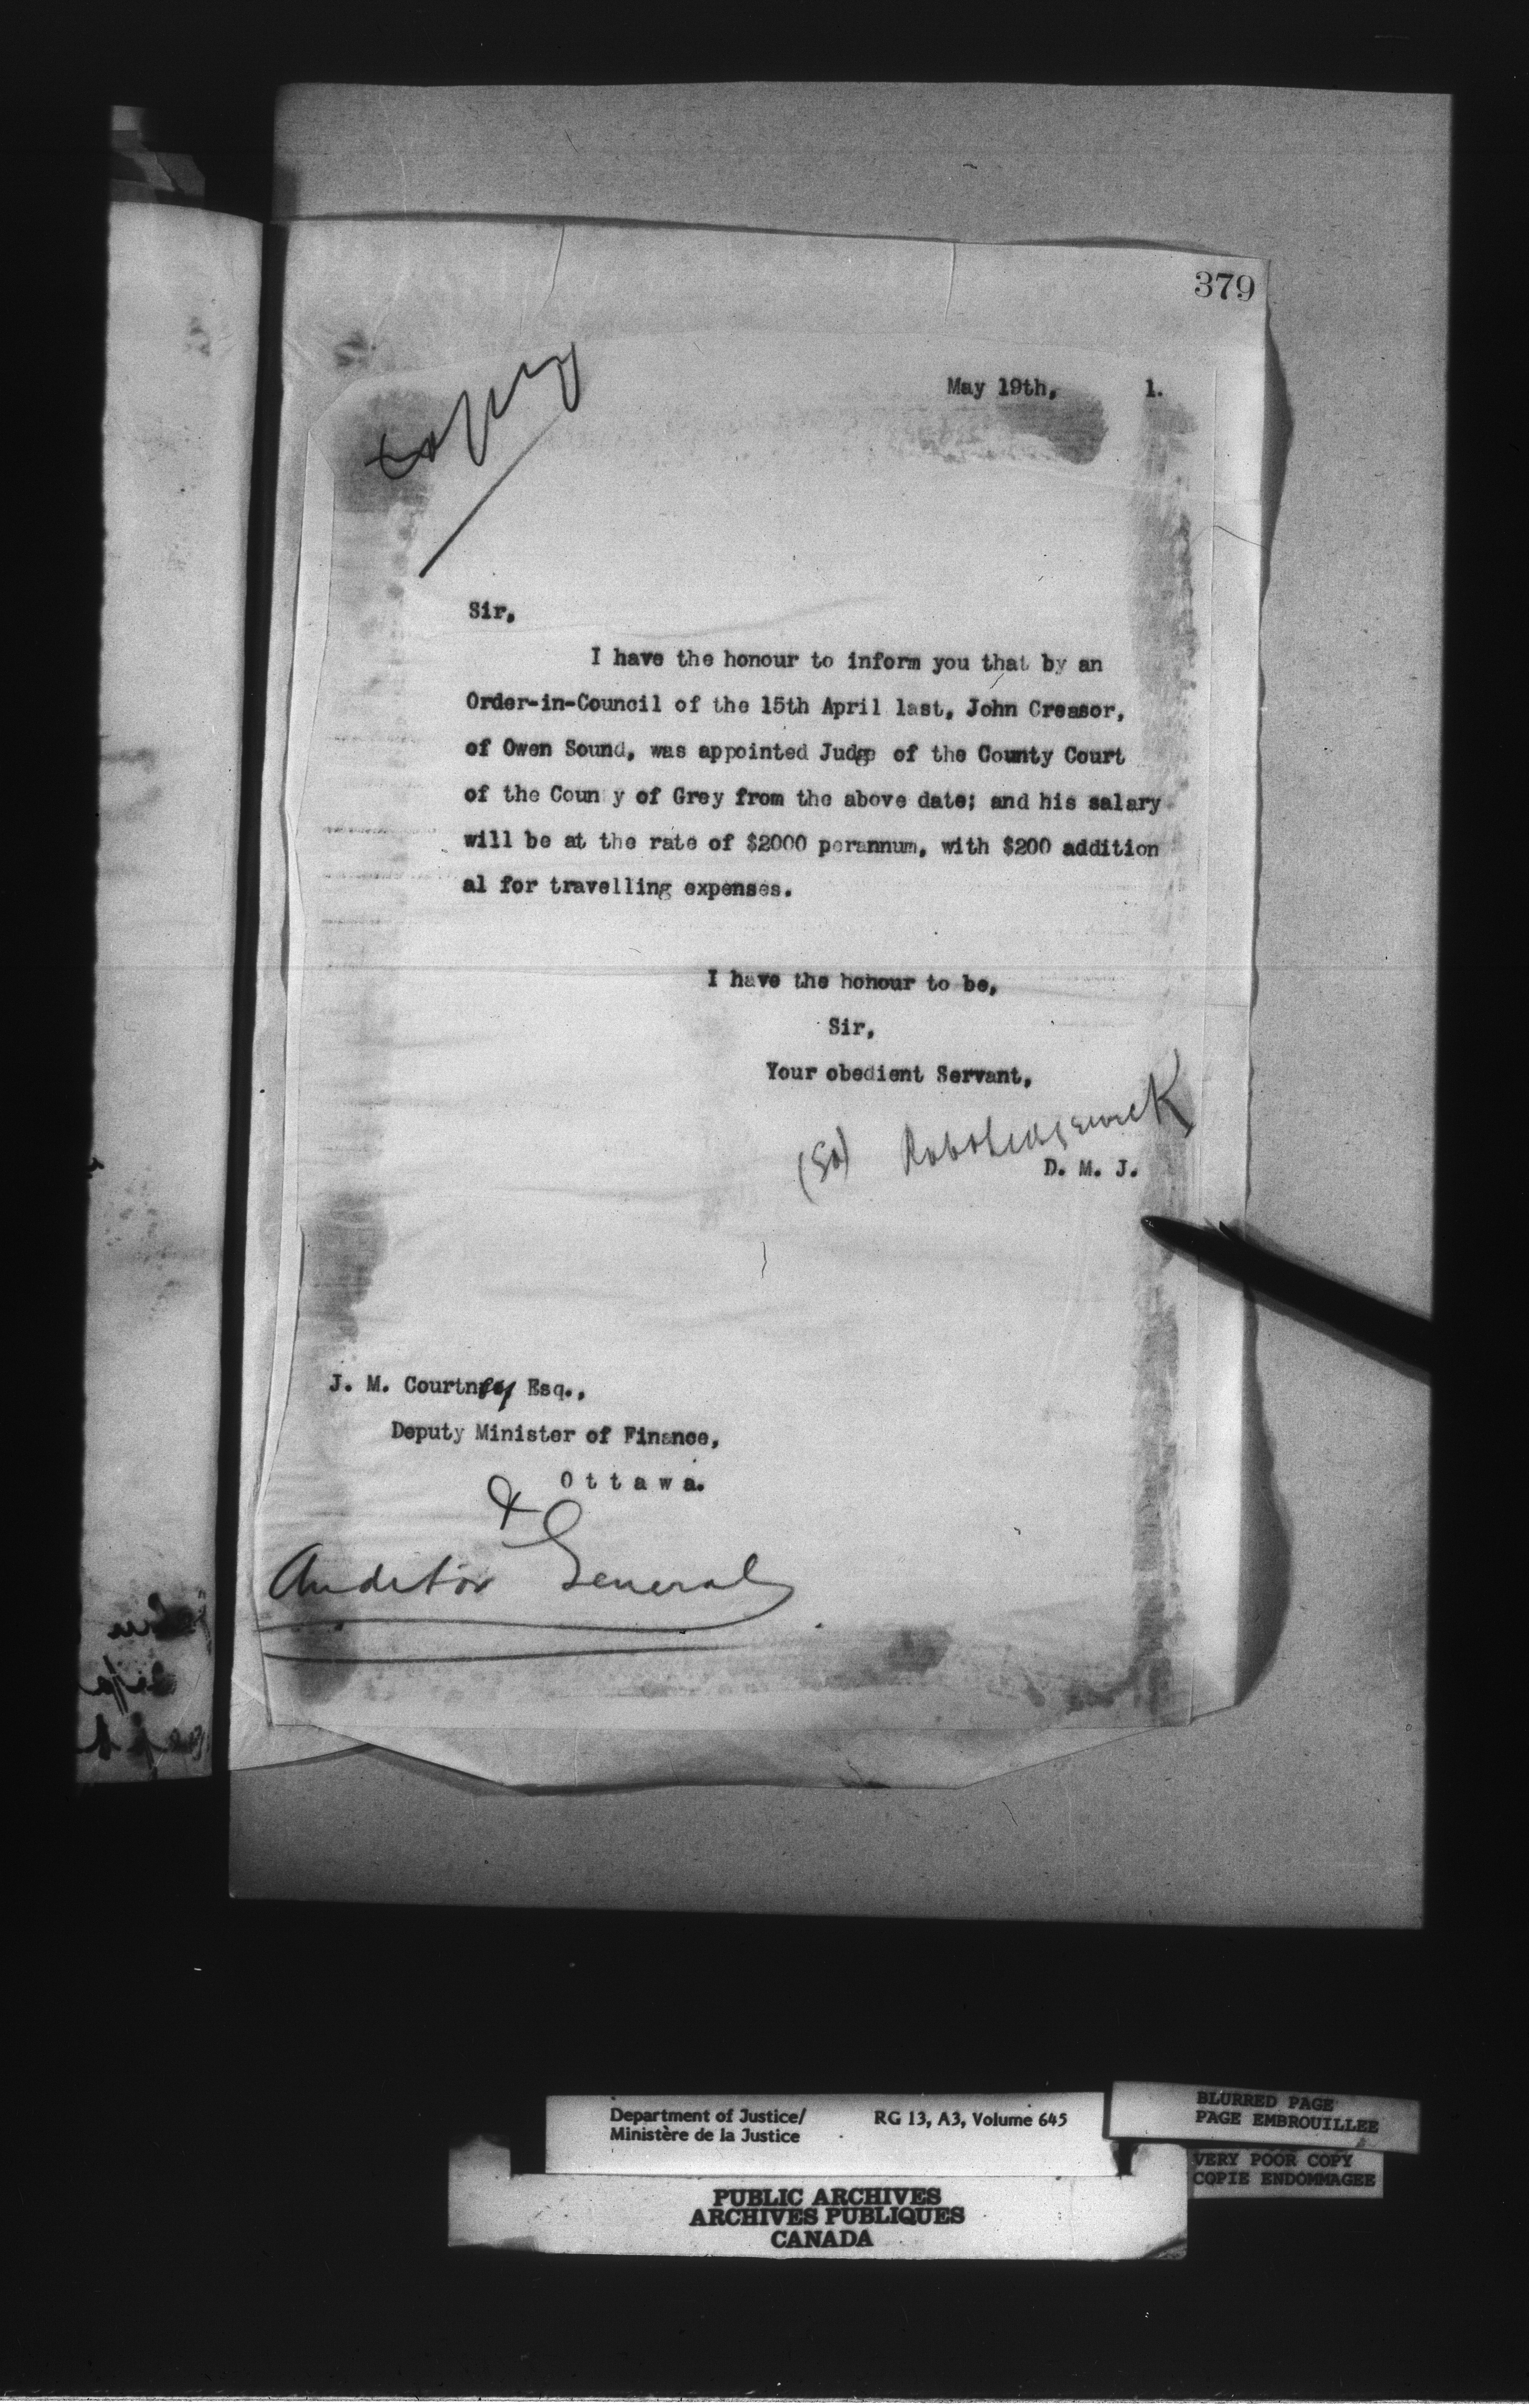 379
Copy
May 19th, 1.
Sir,
I have the honour to inform you that by an
Order-in-Council of the 15th April last, John Creasor,
of Owen Sound, was appointed Judge of the County Court
of the Coun y of Grey from the above date; and his salary
will be at the rate of $2000 perannum, with $200 addition
al for travelling expenses.
I have the honour to be,
Sir,
Your obedient Servant,
(Sd) Robt Sedgewick
D. M. J.
J. M. Courtney Esq.,
Deputy Minister of Finance,
Ottawa.
&
Auditor General
Department of Justice/ RG 13, A3, Volume 645
Ministère de la Justice
BLURRED PAGE
PAGE EMBROUILLEE
VERY POOR COPY
COPIE ENDOMMAGEE
PUBLIC ARCHIVES
ARCHIVES PUBLIQUES
CANADA